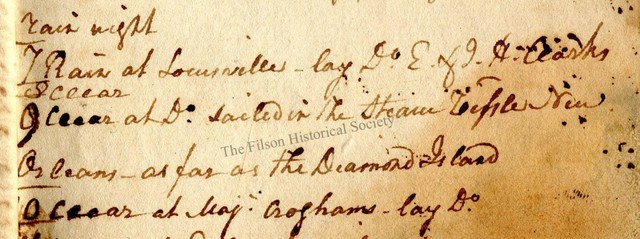 rain night
7 Rain at Locusville - lay Do. E. & J. H. Clarks
8 Clear
9 Clear at Do. sailed in the Steam Vessle New
The Filson Historical Society
Orleans - as far as the Diamond Island
10 Clear at Maj. Croghams - lay Do.